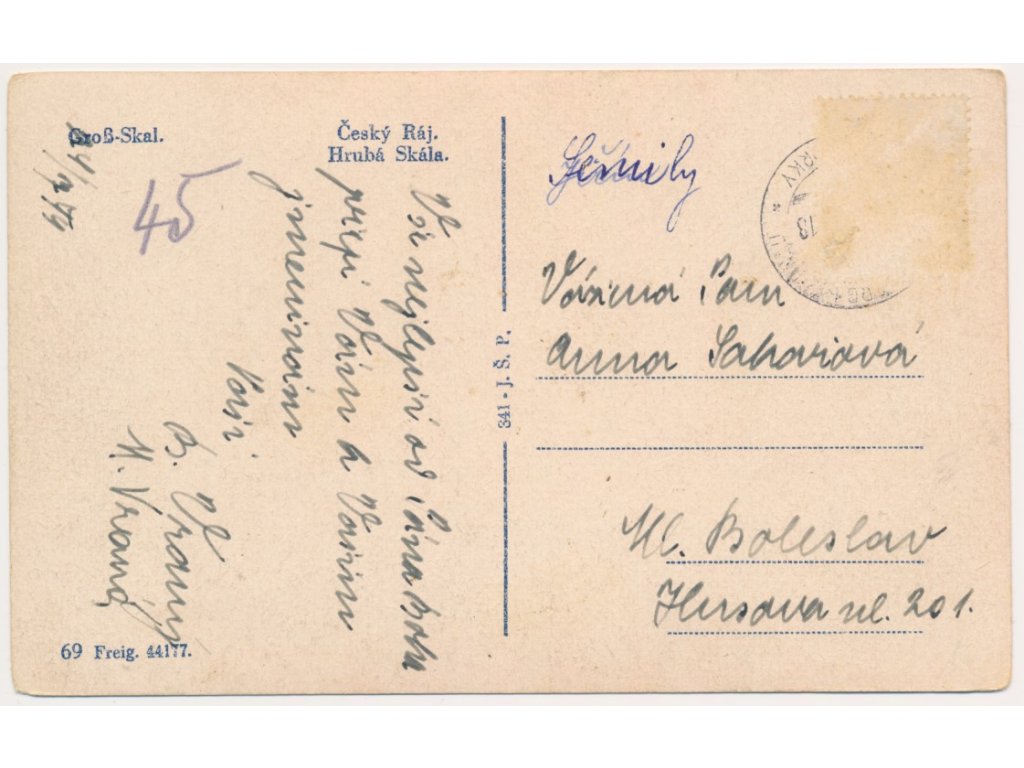 Groß-Skal.
Český Ráj.
Hrubá Skála.
24/7 44
45
Vše nejlepší od Pána Boha
přeji Vám k Vašim
jmeninám
Vaši
B. Vraný
M. Vraná
69 Freig. 44177.
341 - J. Š. P.
Semily
RKY
13
Vážená Paní
Anna Sahariová
Ml. Boleslav
Husova ul. 201.